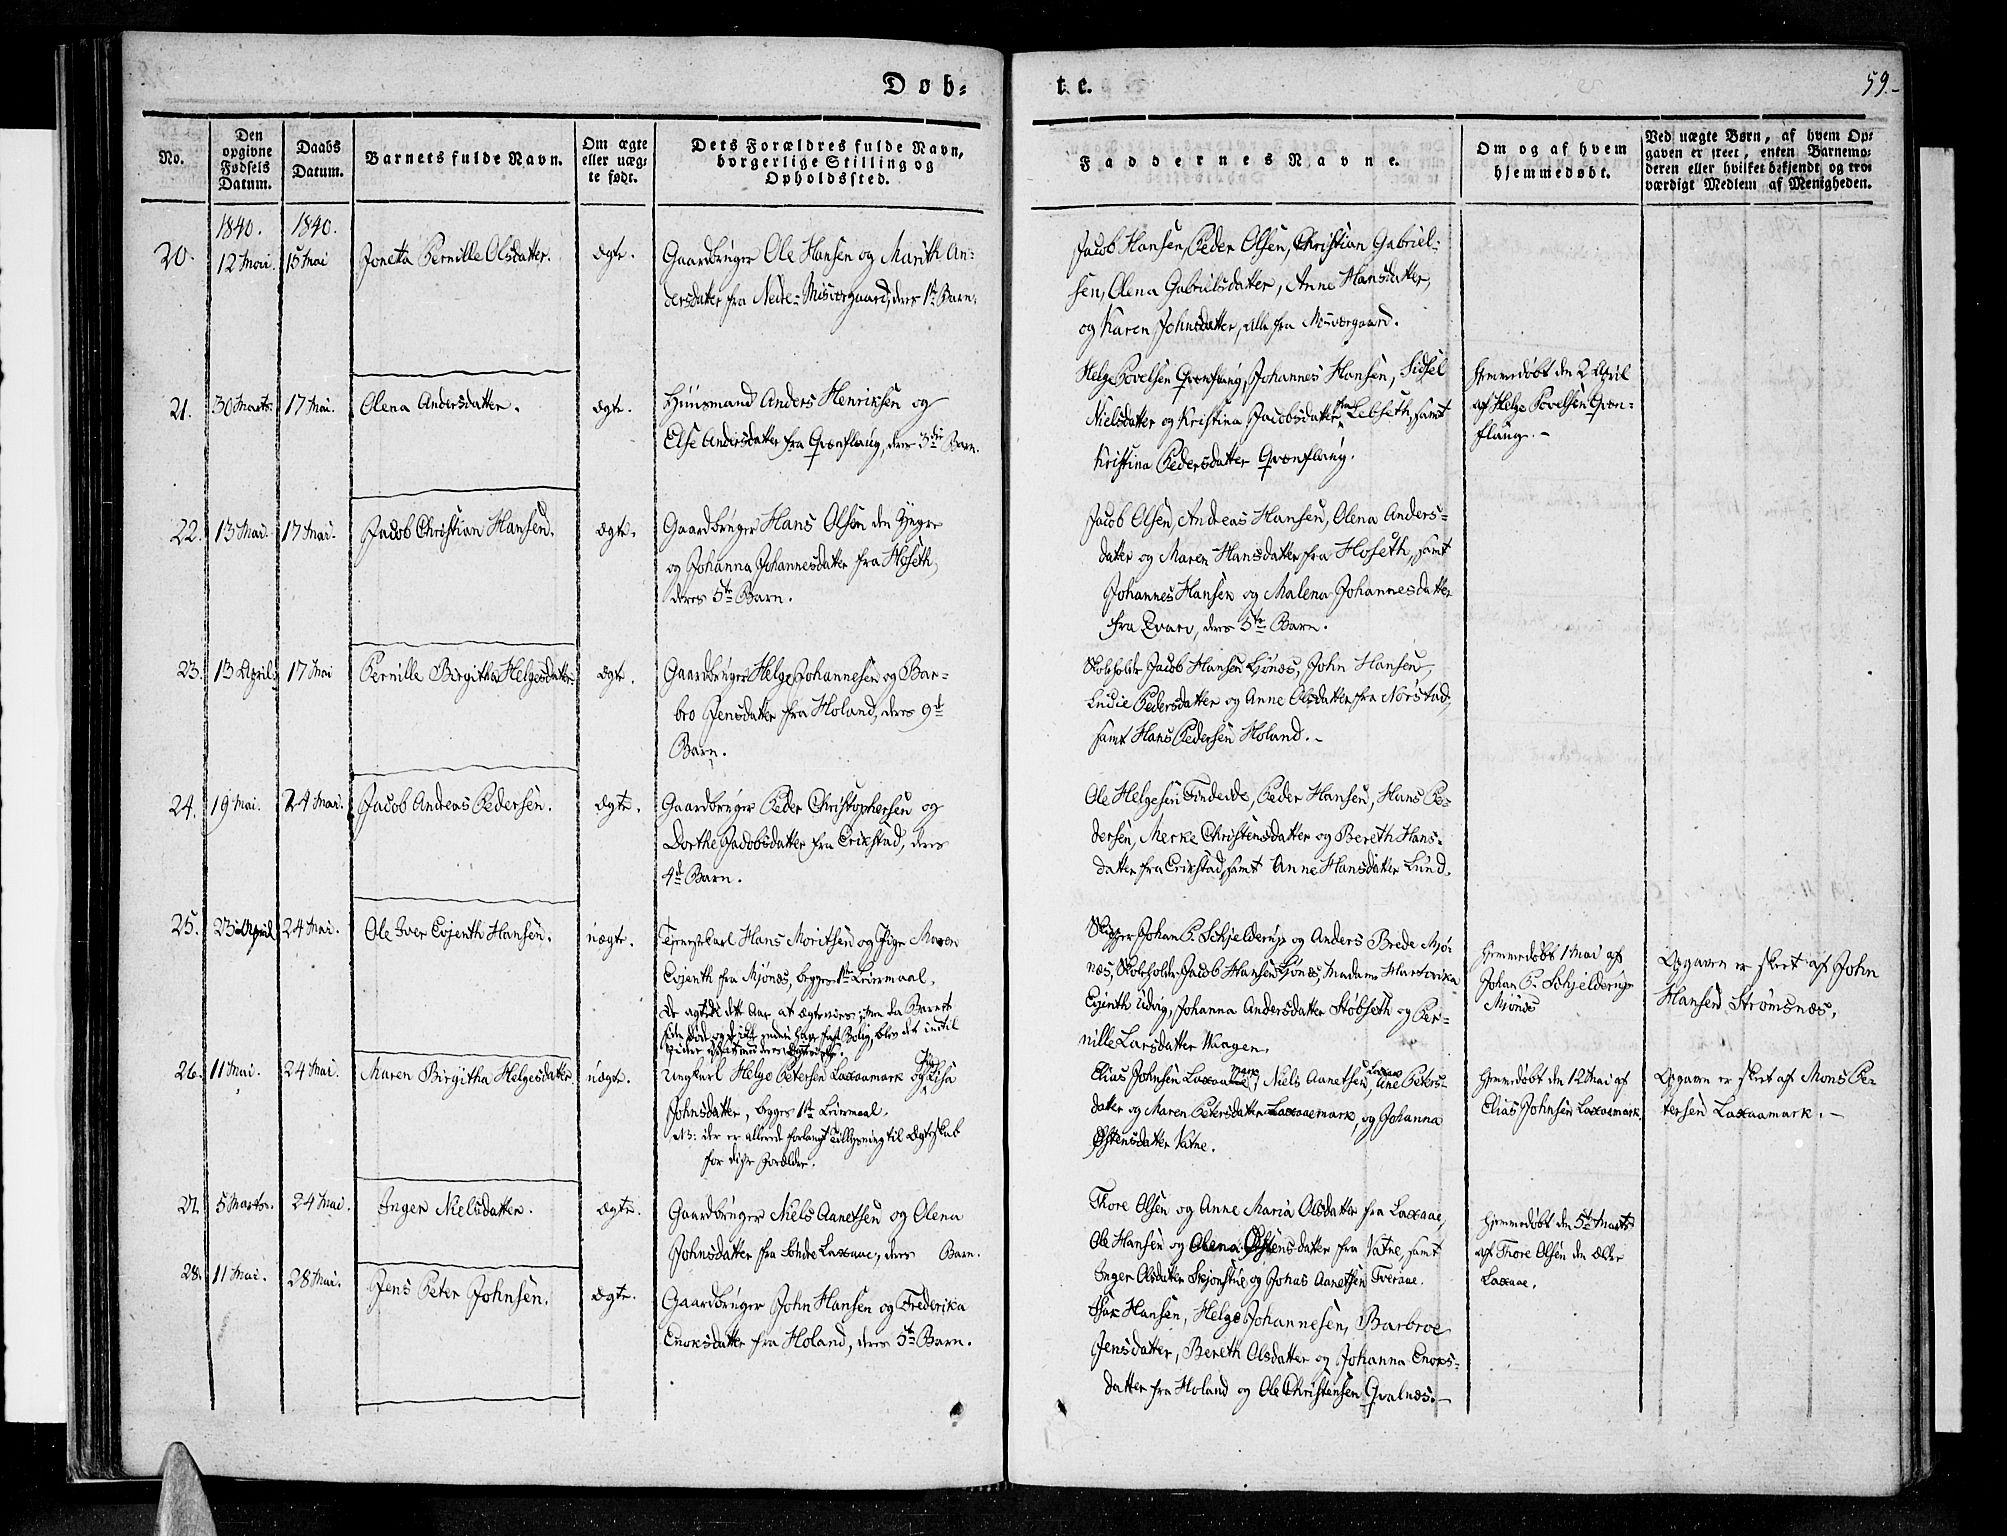 Døb-
te.
59.-
No.
Den opgivne Fødsels Datum.
Daabs Datum.
Barnets fulde Navn.
Om ægte eller uægte født.
Dets Forældres fulde Navn, borgerlige Stilling og Opholdssted.
Faddernes Navne.
Om og af hvem hjemmedøbt.
Ved uægte Børn, af hvem Opgaven er skeet, enten Barnemoderen eller hvilket bekjendt og troværdigt Medlem af Menigheden.
1840.
1840.
20.
12 Mai.
15 Mai
Jonetta Pernille Olsdatter.
Ægte.
Gaardbruger Ole Hansen og Marith An-
dersdatter fra Nedre-Misværgaard, deres 1te Barn.
Jacob Hansen, Peder Olsen, Christian Gabriel-
sen, Olena Gabrielsdatter, Anne Hansdatter,
og Karen Johnsdatter, alle fra Misværgaard.
21.
30 Marts.
17 Mai.
Olena Andersdatter.
Ægte.
Huusmand Anders Henriksen og
Else Andersdatter fra Qvonflaug, deres 3die Barn.
Helge Povelsen Qvonflaug, Johannes Hansen, Sidsel
Nielsdatter og Kristina Jacobsdatter fra Lebseth, samt
Kristina Pedersdatter Qvonflaug.
Hjemmedøbt den 2 April
af Helge Povelsen Qvon-
flaug.-
22.
13 Mai.
17 Mai.
Jacob Christian Hansen.
Ægte.
Gaardbruger Hans Olsøn den Yngre
og Johanna Johannesdatter fra Hoseth,
deres 5te Barn.
Jacob Olsen, Andreas Hansen, Olena Anders-
datter og Maren Hansdatter fra Hoseth, samt
Johannes Hansen og Malena Johannesdatter
fra Evarv, deres 5te Barn.
23.
13 April.
17 Mai
Pernille Birgitha Helgesdatter.
Ægte.
Gaardbruger Helge Johannesen og Bar-
bro Jensdatter fra Holand, deres 9de
Barn.
Skoleholder Jacob Hansen Ljønes, John Hansen,
Ludie Pedersdatter og Anne Olsdatter fra Norstad,
samt Hans Pedersen Holand.-
24.
19 Mai.
24 Mai.
Jacob Andreas Pedersen.
Ægte.
Gaardbruger Peder Christophersen og
Dorthe Jacobsdatter fra Erikstad, deres
4de Barn.
Ole Helgesen Findeide, Peder Hansen, Hans Pe-
dersen, Merke Christensdatter og Bereth Hans-
datter fra Erikstad, samt Anne Hansdatter Lund.
25.
23 April
24 Mai.
Ole Iver Ejenth Hansen.
uægte.
Tjenestkarl Hans Moritsen og Pige Maren
Ejenth fra Mjønes, begges 1te Leiermaal.
De agtede dette Aar, at ægtevies; men da Barnet
Skipper Johan P. Schjelderup og Anders Brede Mjø-
næs, Skoleholder Jacob Hansen Ljønes, Madame Hartvika
Ejenth Udvig, Johanna Andersdatter Støbseth og Per-
nille Larsdatter Waagen.
Hjemmedøbt 1 Mai af
Johan P. Schjelderup
Mjønes
Opgaven er skeet af John
Hansen Strømsnæs.
26.
11 Mai.
24 Mai.
Maren Birgitha Helgesdatter
uægte.
Ungkarl Helge Petersen Laxaamark og Pige Lisa
Johnsdatter, begges 1te Leiermaal.
NB: der er allerede forlangt Tillysning til Ægteskab
for disse Forældre.
Elias Johnsen Laxaamark, Niels Aanetsen Laxaae, Ane Peters-
datter og Maren Petersdatter Laxaamark, og Johanna
Østensdatter Vatne.
Hjemmedøbt den 12 Mai af
Elias Johnsen Laxaamark.
Opgaven er skeet af Mons Pe-
tersen Laxaamark.-
27.
5 Marts.
24 Mai.
Inger Nielsdatter.
Ægte.
Gaardbruger Niels Aanetsen og Olena
Johnsdatter fra Søndre Laxaae, deres Barn.
Thore Olsen og Anne Maria Olsdatter fra Laxaae,
Ole Hansen og Olena Østensdatter fra Vatne, samt
Inger Olsdatter Skjonstue og Johas Aanetsen Tveraae.
Hjemmedøbt den 5te Marts
af Thore Olsen den ældre
Laxaae.
28.
11 Mai.
28 Mai.
Jens Peter Johnsen.
Ægte.
Gaardbruger John Hansen og Frederika
Enoksdatter fra Holand, deres 5te Barn.
Isak Hansen, Helge Johannesen, Barbroe
Jensdatter, Bereth Olsdatter og Johanna Enoks-
datter fra Holand og Ole Christensen Qvalnæs.-